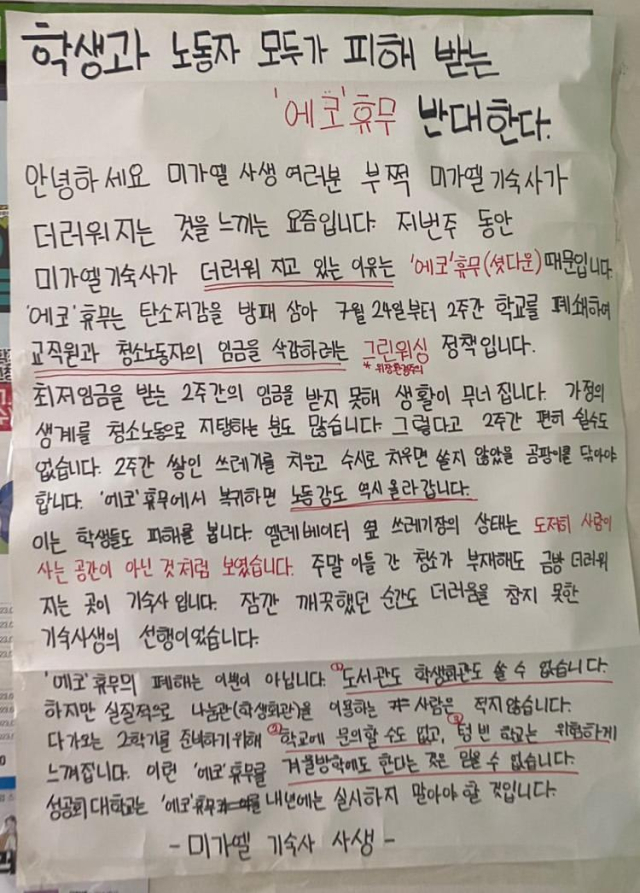 학생과 노동자 모두가 피해 받는
'에코'휴무 반대한다.
안녕하세요 미가엘 사생 여러분 부쩍 미가엘 기숙사가
더러워 지는 것을 느끼는 요즘입니다. 저번주 동안
미가엘기숙사가 더러워 지고 있는 이유는 '에코'휴무(셧다운)때문입니다.
'에코'휴무는 탄소저감을 방패 삼아 7월 24일부터 2주간 학교를 폐쇄하여
교직원과 청소노동자의 임금을 삭감하려는 그린워싱 정책입니다.
* 위장환경주의
최저임금을 받는 2주간의 임금을 받지 못해 생활이 무너집니다. 가정의
생계를 청소노동으로 지탱하는 분도 많습니다. 그렇다고 2주간 편히 쉴수도
없습니다. 2주간 쌓인 쓰레기를 치우고 수시로 치우면 쓸지 않았을 곰팡이를 닦아야
합니다. '에코'휴무에서 복귀하면 노동강도 역시 올라갑니다.
이는 학생들도 피해를 봅니다. 엘레베이터 옆 쓰레기장의 상태는 도저히 사람이
사는 공간이 아닌 것처럼 보였습니다. 주말 이틀 간 청소가 부재해도 금방 더러워
지는 곳이 기숙사 입니다. 잠깐 깨끗했던 순간도 더러움을 참지 못한
기숙사생의 선행이었습니다.
'에코'휴무의 폐해는 이뿐이 아닙니다. ①도서관도 학생회관도 쓸 수 없습니다.
하지만 실질적으로 나눔관(학생회관)을 이용하는 사람은 적지 않습니다.
다가오는 2학기를 준비하기위해 ②학교에 문의할 수도 없고, ③텅 빈 학교는 위험하게
느껴집니다. 이런 '에코'휴무를 겨울방학에도 한다는 것은 믿을 수 없습니다.
성공회대학교는 '에코'휴무를 내년에는 실시하지 말아야 할 것입니다.
- 미가엘 기숙사 사생 -